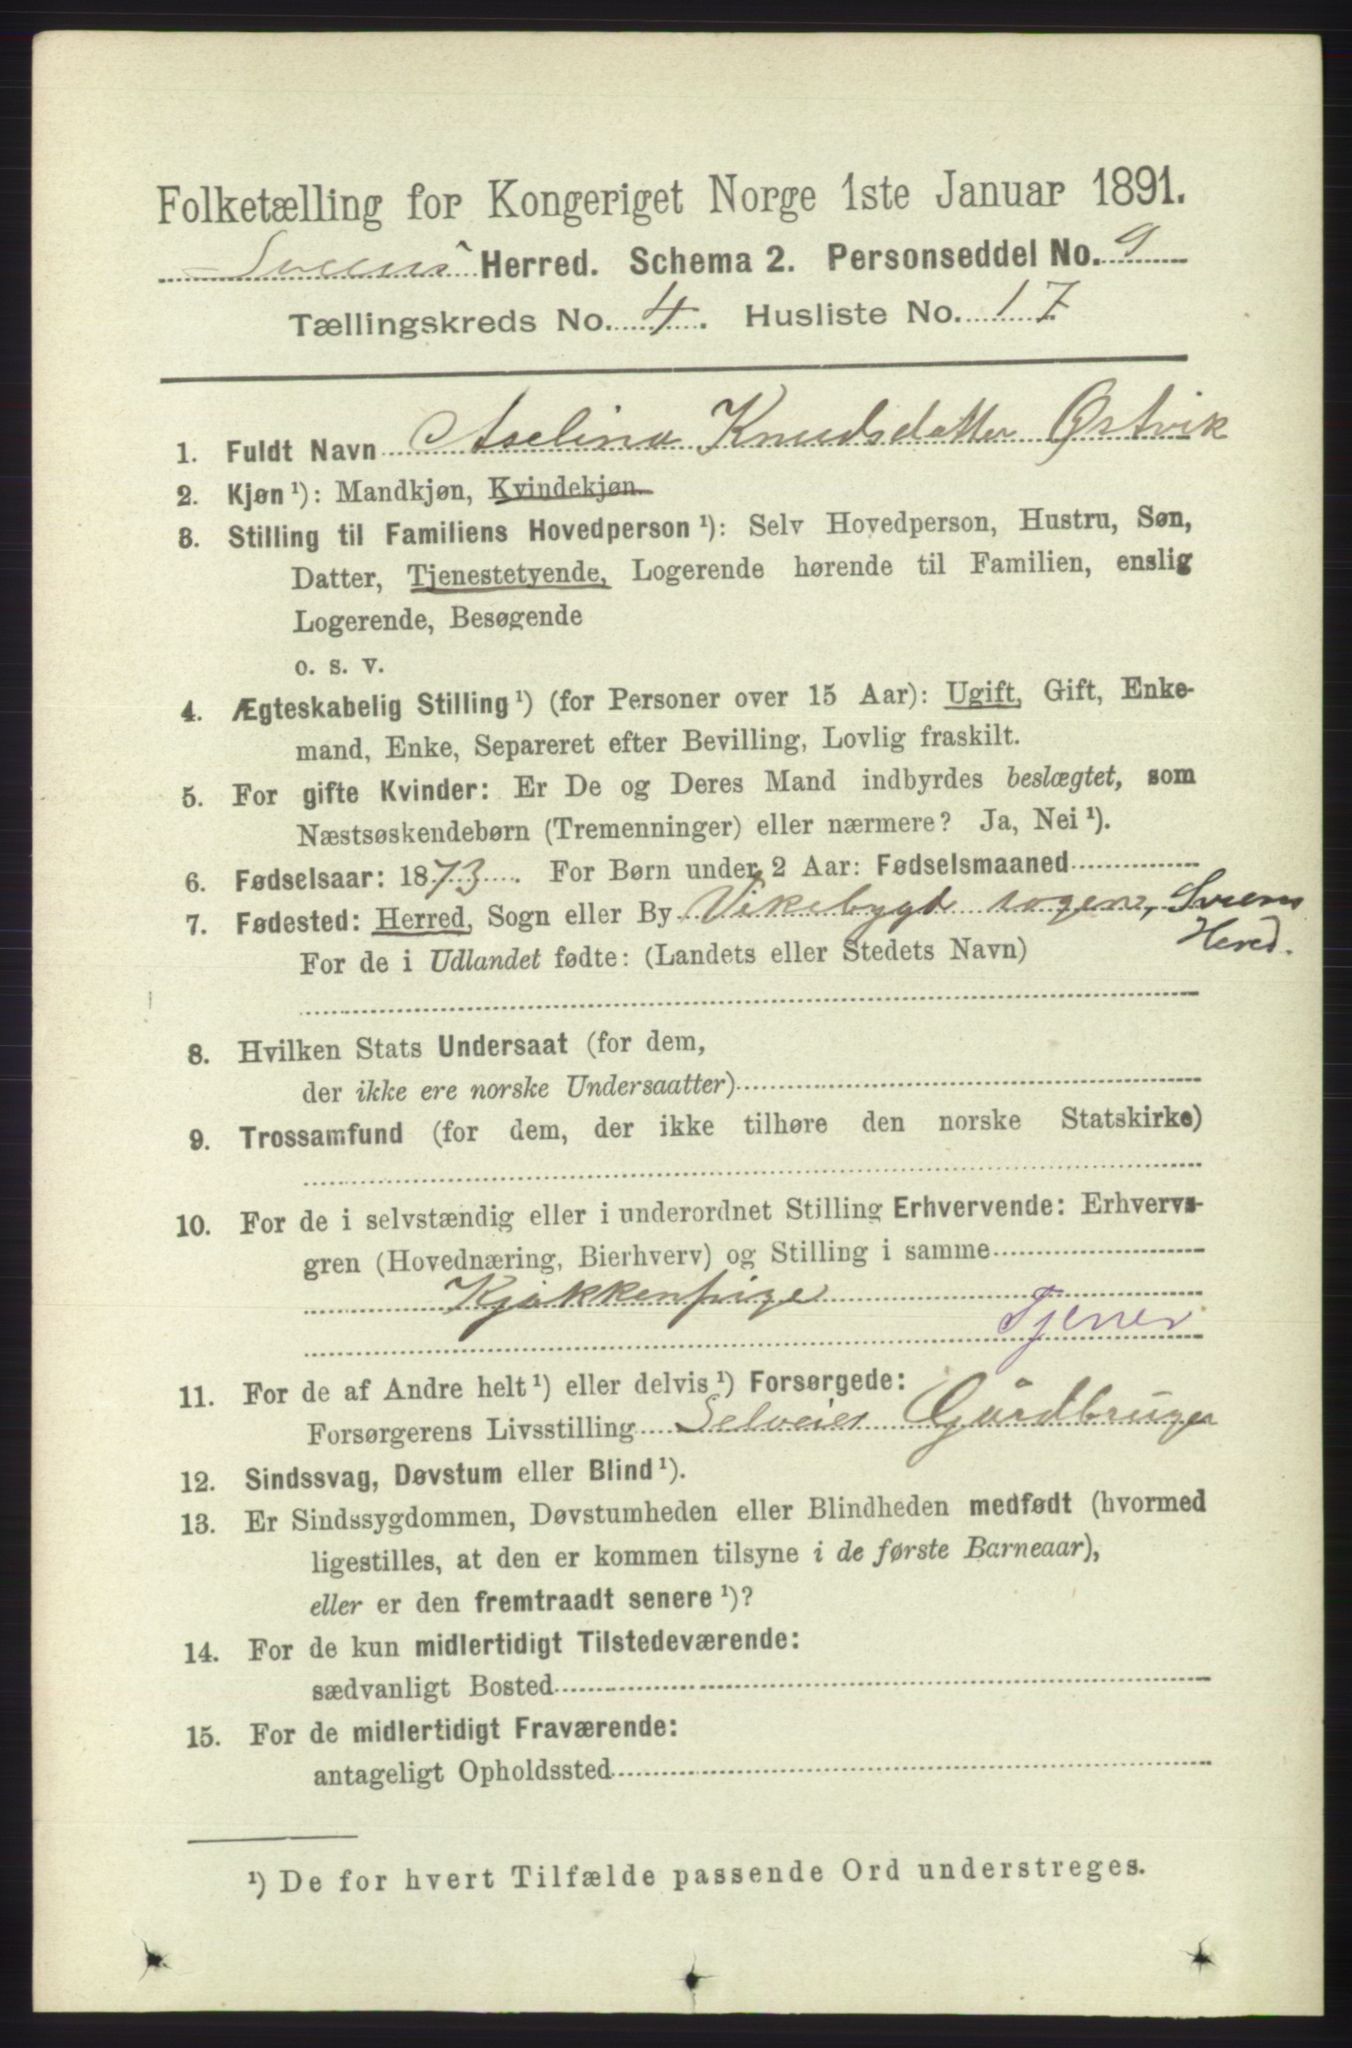 Folketælling for Kongeriget Norge 1ste Januar 1891.
Sveens Herred. Schema 2. Personseddel No. 9
Tællingskreds No. 4. Husliste No. 17
1. Fuldt Navn Aselina Knudsdatter Østvik
2. Kjøn ¹): Mandkjøn, Kvindekjøn
3. Stilling til Familiens Hovedperson ¹): Selv Hovedperson, Hustru, Søn,
Datter, Tjenestetyende, Logerende hørende til Familien, enslig
Logerende, Besøgende
o. s. v.
4. Ægteskabelig Stilling ¹) (for Personer over 15 Aar): Ugift, Gift, Enke-
mand, Enke, Separeret efter Bevilling, Lovlig fraskilt.
5. For gifte Kvinder: Er De og Deres Mand indbyrdes beslægtet, som
Næstsøskendebørn (Tremenninger) eller nærmere? Ja, Nei ¹).
6. Fødselsaar: 1873. For Børn under 2 Aar: Fødselsmaaned
7. Fødested: Herred, Sogn eller By Vikebygd sogen, Sveens
Hered.
For de i Udlandet fødte: (Landets eller Stedets Navn)
8. Hvilken Stats Undersaat (for dem,
der ikke ere norske Undersaatter)
9. Trossamfund (for dem, der ikke tilhøre den norske Statskirke)
10. For de i selvstændig eller i underordnet Stilling Erhvervende: Erhvervs-
gren (Hovednæring, Bierhverv) og Stilling i samme
Kjøkkenpige
Tjener
11. For de af Andre helt ¹) eller delvis ¹) Forsørgede:
Forsørgerens Livsstilling Selveier Gårdbruger
12. Sindssvag, Døvstum eller Blind ¹).
13. Er Sindssygdommen, Døvstumheden eller Blindheden medfødt (hvormed
ligestilles, at den er kommen tilsyne i de første Barneaar),
eller er den fremtraadt senere ¹)?
14. For de kun midlertidigt Tilstedeværende:
sædvanligt Bosted
15. For de midlertidigt Fraværende:
antageligt Opholdssted
¹) De for hvert Tilfælde passende Ord understreges.